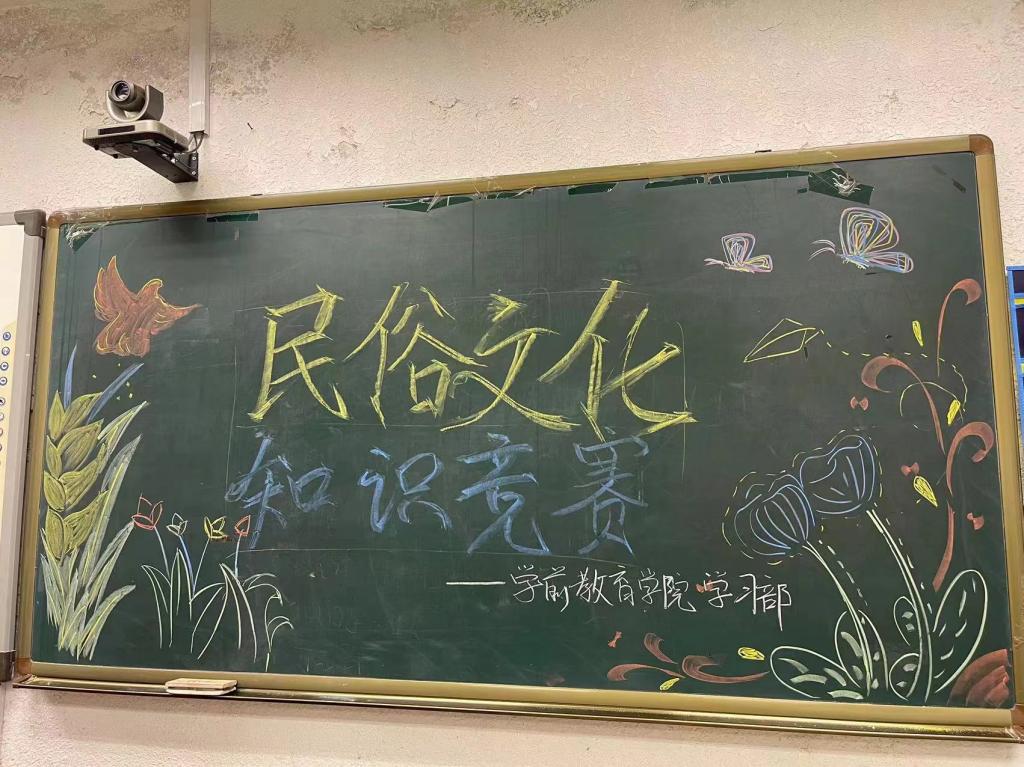 民俗文化
知识竞赛
——学前教育学院 学习部